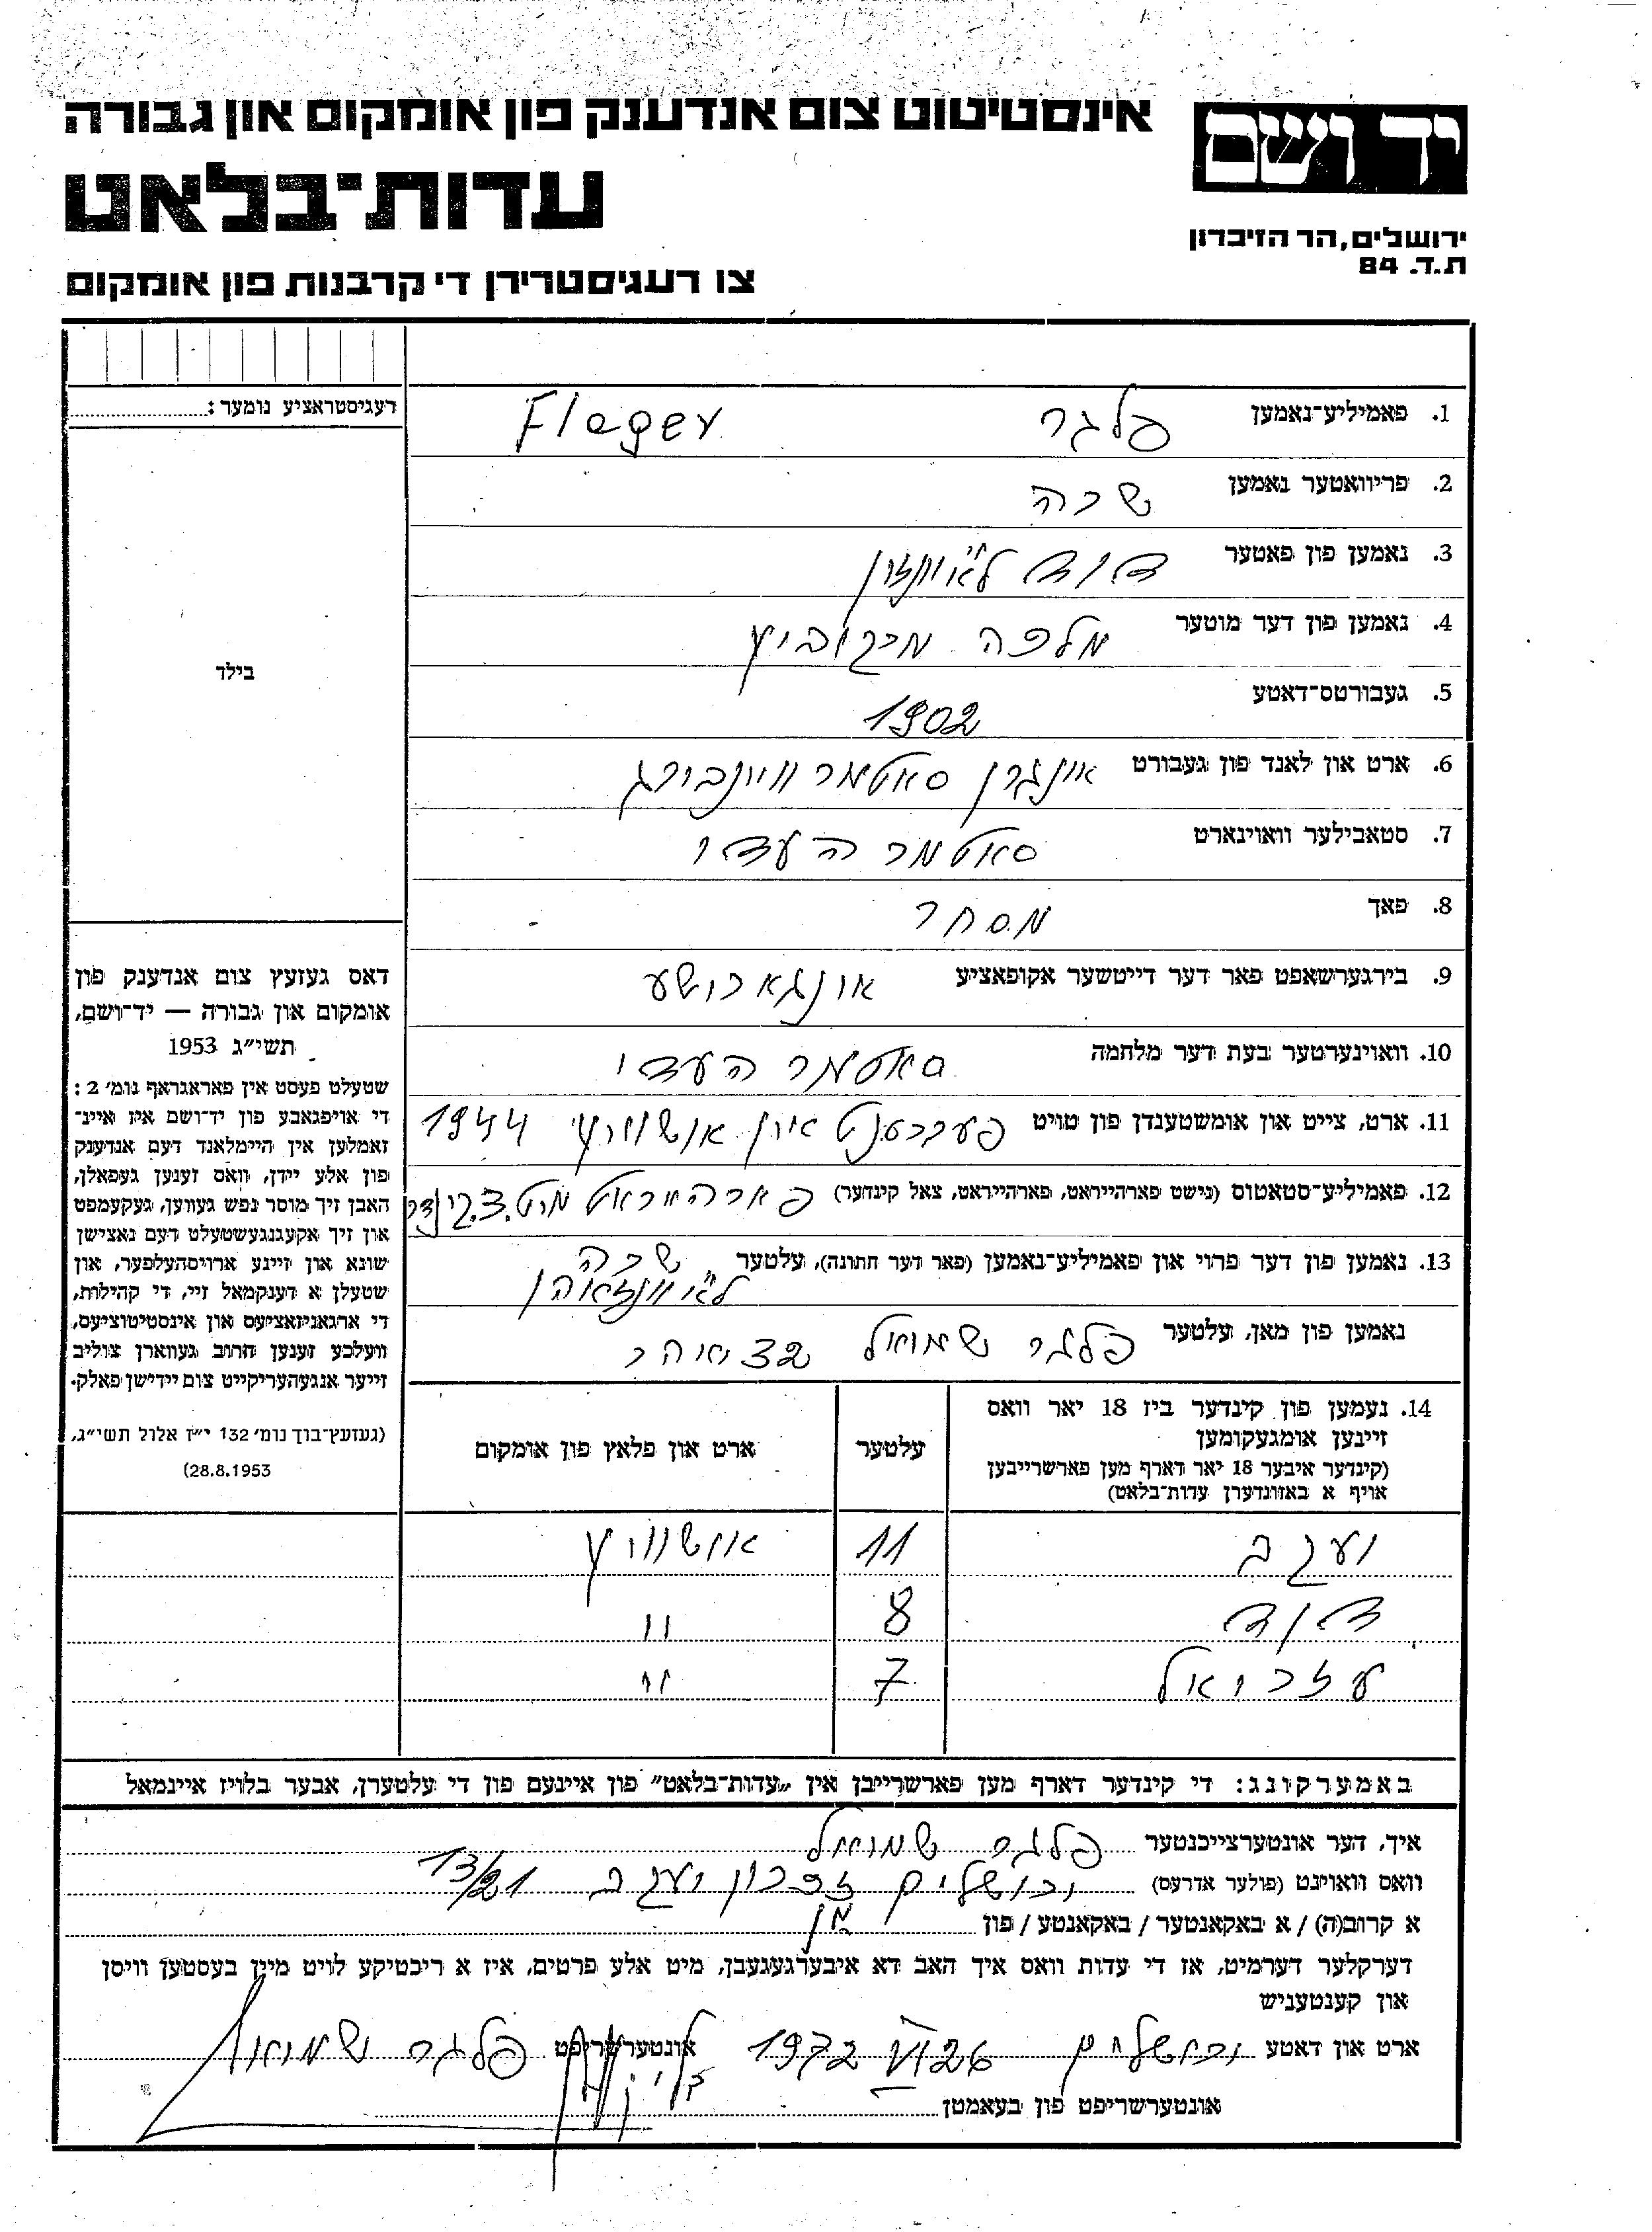 יד ושם
אינסטיטוט צום אנדענק פון אומקום און גבורה
עדות־בלאט
ירושלים, הר הזיכרון
ת.ד. 84
צו רעגיסטרירן די קרבנות פון אומקום
רעגיסטראציע נומער:
1. פאמיליע־נאמען פלגר Fleger
2. פריוואטער נאמען שרה
3. נאמען פון פאטער דוד
4. נאמען פון דער מוטער מלכה מרקוביץ
5. געבורטס־דאטע 1902
6. ארט און לאנד פון געבורט אונגרן סאטמר
7. סטאבילער וואוינארט סאטמר העדי
8. פאך מסחר
9. בירגערשאפט פאר דער דייטשער אקופאציע אונגארישע
10. וואוינערטער בעת דער מלחמה סאטמר העדי
11. ארט, צייט און אומשטענדן פון טויט פערברענט אין אושוויץ 1944
12. פאמיליע־סטאטוס (נישט פארהייראט, פארהייראט, צאל קינדער) פארהייראט מיט 3 קינדר
13. נאמען פון דער פרוי און פאמיליע־נאמען (פאר דער חתונה), עלטער שרה
נאמען פון מאן, עלטער פלגר שמואל
בילד
דאס געזעץ צום אנדענק פון
אומקום און גבורה — יד־ושם,
תשי״ג 1953
שטעלט פעסט אין פאראגראף נומ׳ 2:
די אויפגאבע פון יד־ושם איז איינ־
זאמלען אין היימלאנד דעם אנדענק
פון אלע יידן, וואס זענען געפאלן,
האבן זיך מוסר נפש געווען, געקעמפט
און זיך אקעגנגעשטעלט דעם נאצישן
שונא און זיינע ארויסהעלפער, און
שטעלן א דענקמאל זיי, די קהילות,
די ארגאניזאציעס און אינסטיטוציעס,
וועלכע זענען חרוב געווארן צוליב
זייער אנגעהעריקייט צום יידישן פאלק.
(געזעץ־בוך נומ׳ 132 י״ז אלול תשי״ג,
28.8.1953)
14. נעמען פון קינדער ביז 18 יאר וואס
זיינען אומגעקומען
(קינדער איבער 18 יאר דארף מען פארשרייבן
אויף א באזונדערן עדות־בלאט)
עלטער
ארט און פלאץ פון אומקום
יעקב 11 אושוויץ
דוד 8 "
עזריאל 7 "
באמערקונג: די קינדער דארף מען פארשרייבן אין „עדות־בלאט” פון איינעם פון די עלטערן, אבער בלויז איינמאל
איך, דער אונטערצייכנטער פלגר שמואל
וואס וואוינט (פולער אדרעס) ירושלים זכרון יעקב 13/21
א קרוב(ה) / א באקאנטער / באקאנטע / פון מן
דערקלער דערמיט, אז די עדות וואס איך האב דא איבערגעגעבן, מיט אלע פרטים, איז א ריכטיקע לויט מיין בעסטען וויסן
און קענטעניש
ארט און דאטע ירושלים 26 VI 1972 אונטערשריפט פלגר שמואל
אונטערשריפט פון בעאמטן